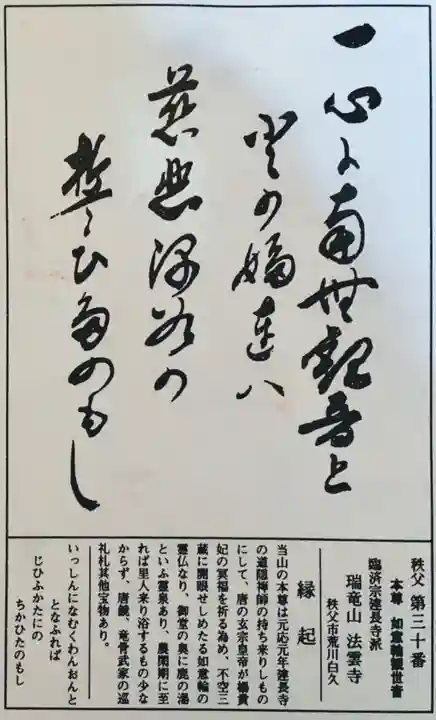 一心に南無観音と
登の婦連ハ
慈悲深谷の
誓ひ多のもし
秩父 第三十番
本尊 如意輪観世音
臨済宗建長寺派
瑞竜山 法雲寺
秩父市荒川白久
縁起
当山の本尊は元応元年建長寺
の道隠禅師の持ち来りしもの
にして、唐の玄宗皇帝が楊貴
妃の冥福を祈る為め、不空三
蔵に開眼せしめたる如意輪の
霊仏なり、御堂の奥に鹿の湯
といふ霊泉あり、農閑期に至
れば里人来り浴するもの少な
からず、唐鏡、竜骨武家の巡
礼札其他宝物あり。
いっしんになむくわんおんと
となふれば
じひふかたにの
ちかひたのもし